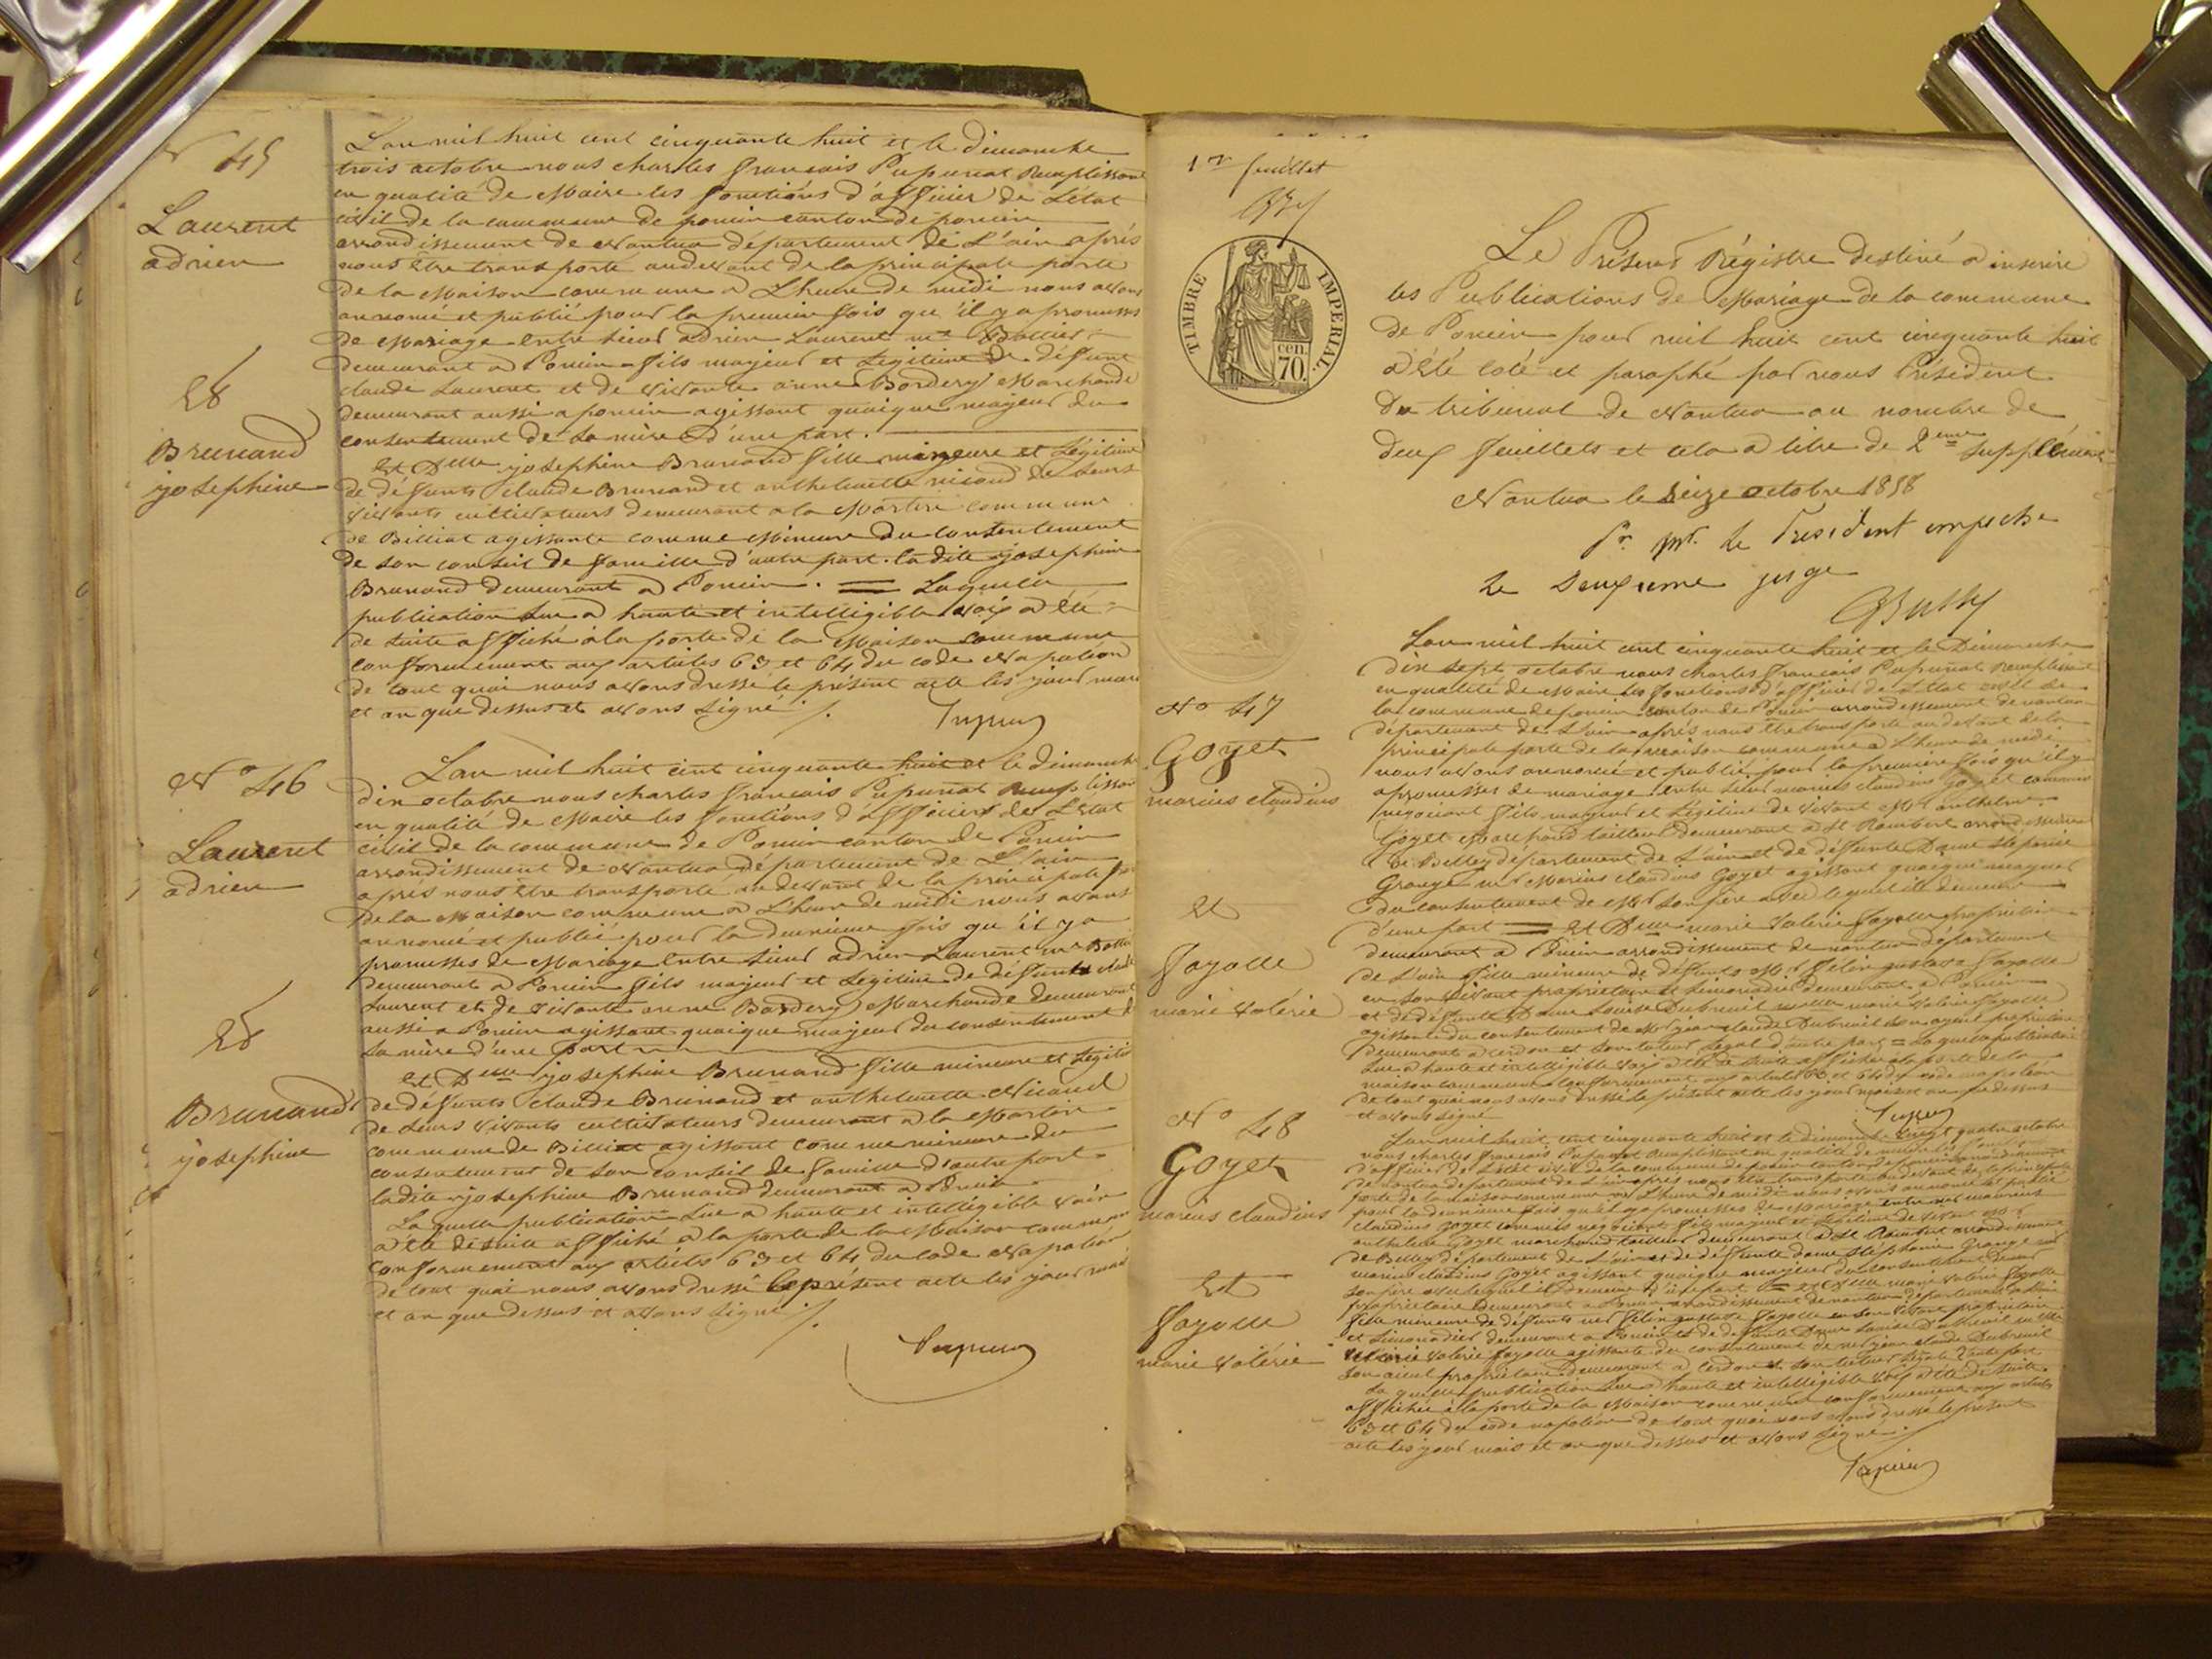 N° 45
Laurent
adrien
Et
Brunand
josephine
L'an mil huit cent cinquante huit et le dimanche
trois octobre nous charles francois Pupunat Remplissant
en qualité de Maire les fonctions d'officier de L'état
civil de la commune de poncin canton de poncin
arrondissement de Nantua département de L'ain après
nous être transporté audevant de la principale porte
De la Maison commune a L'heure de midi nous avons
annoncé et publié pour la premiere fois qu'il y a promesses
de Mariage entre sieur adrien Laurent
demeurant a Poncin fils majeur et Legitime de défunt
claude Laurent et de vivante anne Bordery Marchande
demeurant aussi a poncin agissant quoique majeur du
consentement de sa mère d'une part.
Et Delle josephine Brunand fille mineure et Légitime
de défunts claude Brunand et anthelmette nicoud de leurs
vivants cultivateurs demeurant a la Martire commune
de Billiat agissante comme Mineure du consentement
de son conseil de famille d'autre part. la dite josephine
Brunand demeurant a Poncin. = Laquelle
publication lue a haute et intelligible voix a été
de suite affiché a la porte de la Maison commune
conformement aux articles 63 et 64 du code Napoléon
de tout quoi nous avons dressé le présent acte les jour mois
et an que dessus et avons signé ./.
N° 46
Laurent
adrien
Et
Brunand
josephine
L'an mil huit cent cinquante huit et le dimanche
dix octobre nous charles francois Pupunat Remplissant
en qualité de Maire les fonctions d'officier de L'état
civil de la commune de Poncin canton de Poncin
arrondissement de Nantua département de L'ain
apres nous être transporté au devant de la principale
de la Maison commune a L'heure de midi nous avons
annoncé et publié pour la deuxieme fois qu'il y a
promesses de Mariage entre sieur adrien Laurent
demeurant a Poncin fils majeur et Legitime de défunt claude
Laurent et de vivante anne Bordery Marchande demeurant
aussi a Poncin agissant quoique majeur du consentement de
sa mère d'une part
Et Delle josephine Brunand fille mineure et Légitime
de défunts claude Brunand et anthelmette Nicoud
de leurs vivants cultivateurs demeurant a la Martire
commune de Billiat agissant comme mineure du
consentement de son conseil de famille d'autre part
ladite josephine Brunand demeurant a Poncin
La quelle publication lue a haute et intelligible voix
a été de suite affiché a la porte de la Maison commune
conformement aux articles 63 et 64 du code Napoléon
de tout quoi nous avons dressé le présent acte les jour mois
et an que dessus et avons signé ./.
1er feuillet
TIMBRE IMPERIAL
70 cen.
Le Présent Régistre destiné a inscrire
les Publications de Mariage de la commune
de Poncin pour mil huit cent cinquante huit
a été coté et paraphé par nous Président
du tribunal de Nantua au nombre de
deux feuillets et cela a titre de 2eme supplément
Nantua le seize octobre 1858
Pr Mr. le President empeché
le Deuxieme juge
N° 47
Goyet
marius claudius
Et
fayolle
marie valérie
L'an mil huit cent cinquante huit et le Dimanche
dix sept octobre nous charles francois Pupunat Remplissant
en qualité de Maire les fonctions d'officier de L'état civil de
la commune de poncin canton de Poncin arrondissement de nantua
département de L'ain après nous être transporté audevant de la
principale porte de la maison commune a L'heure de midi
nous avons annoncé et publié pour la premiere fois qu'il y
a promesses de mariage entre sieur marius claudius Goyet commis
négociant fils majeur et Légitime de vivant Mr anthelme
Goyet Marchand tailleur demeurant a St Rambert arrondissement
de Belley département de L'ain et de défunte Dame stephanie
Grange mr Marius claudius Goyet agissant quoique majeur
du consentement de Mr son père avec lequel il demeure
d'une part = Et Delle marie valerie fayolle propriétaire
demeurant a Poncin arrondissement de nantua département
de L'ain fille mineure de défunts Mr félix gustave fayolle
en son vivant propriétaire et Limonadier demeurant a Poncin
et de défunte Dame Louise Dubreuil melle marie valerie fayolle
agissante du consentement de Mr jean claude Dubreuil son ayeul propriétaire
demeurant a cerdon et son tuteur Légal d'autre part = La quelle publication
lue a haute et intelligible voix a été de suite affichée a la porte de la
maison commune conformement aux articles 63 et 64 du code napoléon
de tout quoi nous avons dressé le présent acte les jour mois et an que dessus
et avons signé
N° 48
Goyet
marius claudius
Et
fayolle
marie valérie
L'an mil huit cent cinquante huit et le dimanche vingt quatre octobre
nous charles francois Pupunat Remplissant en qualité de maire
d'officier de L'état civil de la commune de poncin canton de poncin arrondissement
de nantua departement de L'ain apres nous être transporté audevant de la principale
porte de la maison commune a L'heure de midi nous avons annoncé et publié
pour la deuxieme fois qu'il y a promesses de Mariage entre mr marius
claudius goyet commis négociant fils majeur et Légitime de vivant Mr
anthelme Goyet marchand tailleur demeurant a St Rambert arrondissement
de Belley département de L'ain et de défunte dame stéphanie Grange mr
marius claudius Goyet agissant quoique majeur du consentement de mr
son père avec lequel il demeure d'une part = et Delle marie valérie fayolle
propriétaire demeurant a Poncin arrondissement de nantua departement de L'ain
fille mineure de défunts mr félix gustave fayolle en son vivant propriétaire
et Limonadier demeurant a Poncin et de défunte Dame Louise Dubreuil melle
marie valérie fayolle agissante du consentement de mr jean claude Dubreuil
son aieul propriétaire demeurant a cerdon et son tuteur Légal d'autre part
La quelle publication lue a haute et intelligible voix a été de suite
affichée a la porte de la Maison commune conformement aux articles
63 et 64 du code napoléon de tout quoi nous avons dressé le présent
acte les jour mois et an que dessus et avons signé ./.